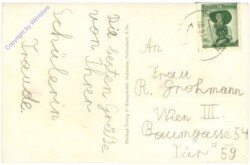 Die besten Grüße
von Ihrer
Schülerin
Traude.
An
Frau
R. Grohmann
Wien III.
Baumgasse 54
Tür 59